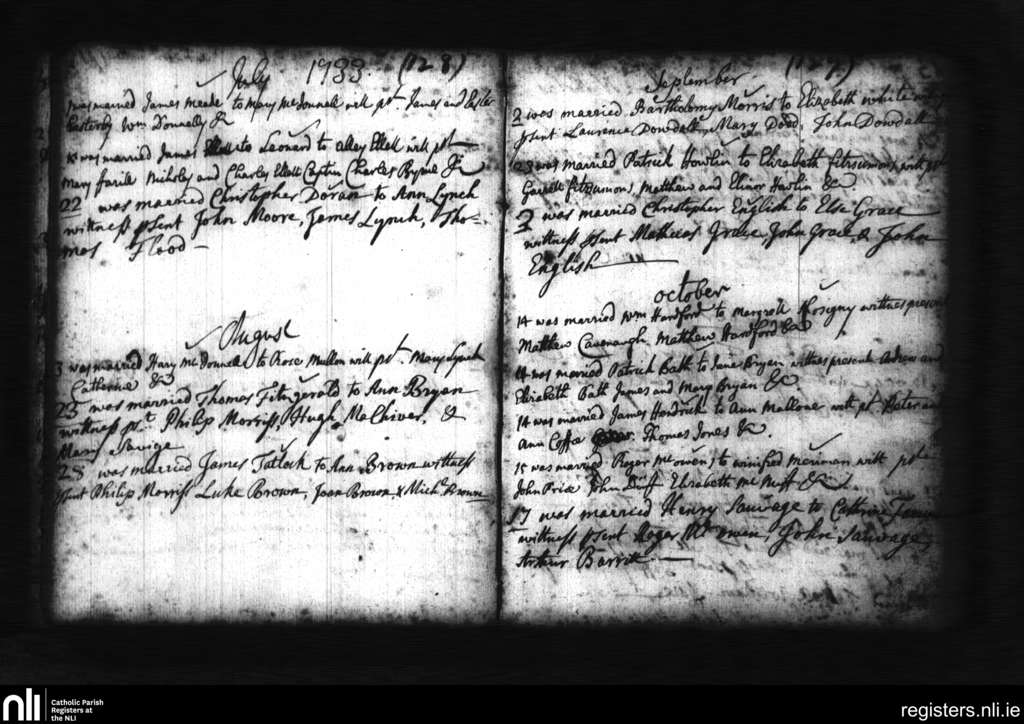 July 1733. (128)
was married James Meade to Mary McDonnell witt pt James and Easter
Easterby Wm Donnelly &c
was married James to Leonard to alley Ellott witt pt
Mary farill Nicholas and Charley Ellott Captin Charles Byrne &c
22 was married Christopher Doran to Ann Lynch
wittness psent John Moore, James Lynch, Tho-
mas Flood
August
3 was married Hary McDonnell to Rose Mullon witt pt. Mary Lynch
Catherine &c
23 was married Thomas Fitzgerald to Ann Bryan
wittness pt. Philip Morriss, Hugh McChiver, &
Mary Savige
28 was married James Tatlock to Ann Brown wittness
psent Philip Morriss Luke Brown, Joan Brown, & Mich. Brown
September (127)
2 was married Bartholomy Morris to Elizabeth white
psent Laurence Dowdall, Mary Dodd, John Dowdall
23 was married Patrick Howlin to Elizabeth fitzsumons witt
Garrett fitzsumons, Matthew and Elinor Howlin &c.
2 was married Christopher English to Else Grace
wittness psent Matheas Grace, John Grace, & John
English
October
14 was married Wm Hardford to Margrett wittnes present
Matthew Cavenaugh, Matthew Hardford &c
14 was married Patrick Bath to Jane Bryan wittnes present Andrew and
Elizabeth Bath James and Mary Bryan &c.
14 was married James Hendrick to Ann Mallone witt pt. Peter and
Ann Coffee Thomas Jones &c.
15 was married Roger McOwen to winifred Merriman witt
John Price John Duff Elizabeth McNuff &c
17 was married Henry Sauvage to Cathrin
wittness psent Roger McOwen, John Sauvage,
Arthur Barrit
nli
Catholic Parish
Registers at
the NLI
registers.nli.ie